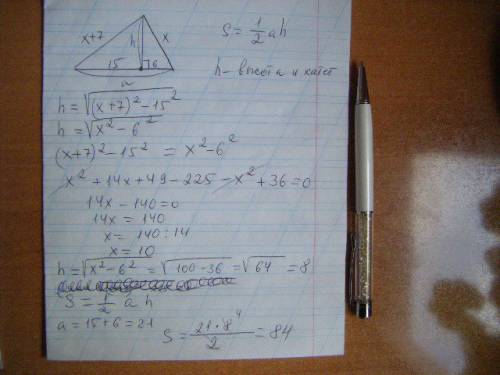 x+7 h x
15 6
a
S = 1/2 a h
h – высота и катет
h = √((x+7)² – 15²)
h = √(x² – 6²)
(x+7)² – 15² = x² – 6²
x² + 14x + 49 – 225 – x² + 36 = 0
14x – 140 = 0
14x = 140
x = 140 : 14
x = 10
h = √(x² – 6²) = √(100 – 36) = √64 = 8
S = 1/2 a h
a = 15 + 6 = 21
S = (21 · 8⁴)/2 = 84